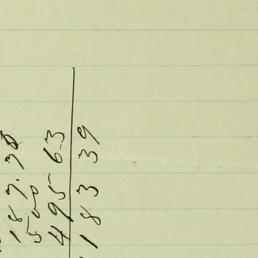 187.38
500
495 63
183 39